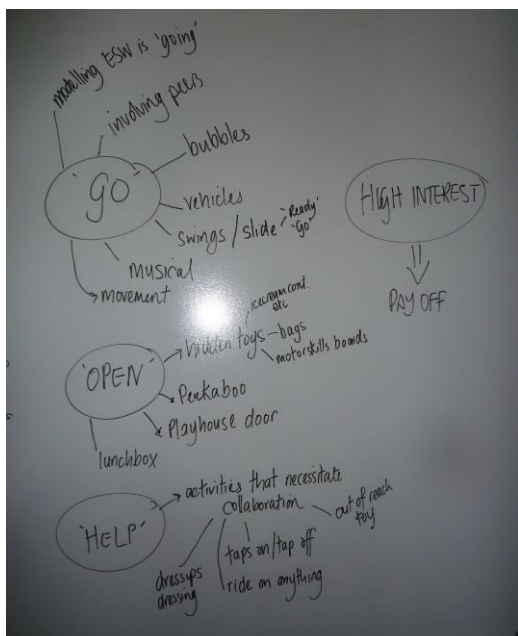 modelling ESW is 'going'
involving peers
bubbles
'GO'
vehicles
swings / slide
'Ready'
'Go'
musical
movement
HIGH INTEREST
PAY OFF
'OPEN'
hidden toys - bags
icecream cont.
etc
motorskills boards
Peekaboo
Playhouse door
lunchbox
'HELP'
activities that necessitate
collaboration
out of reach
toy
taps on/tap off
dressups
dressing
ride on anything